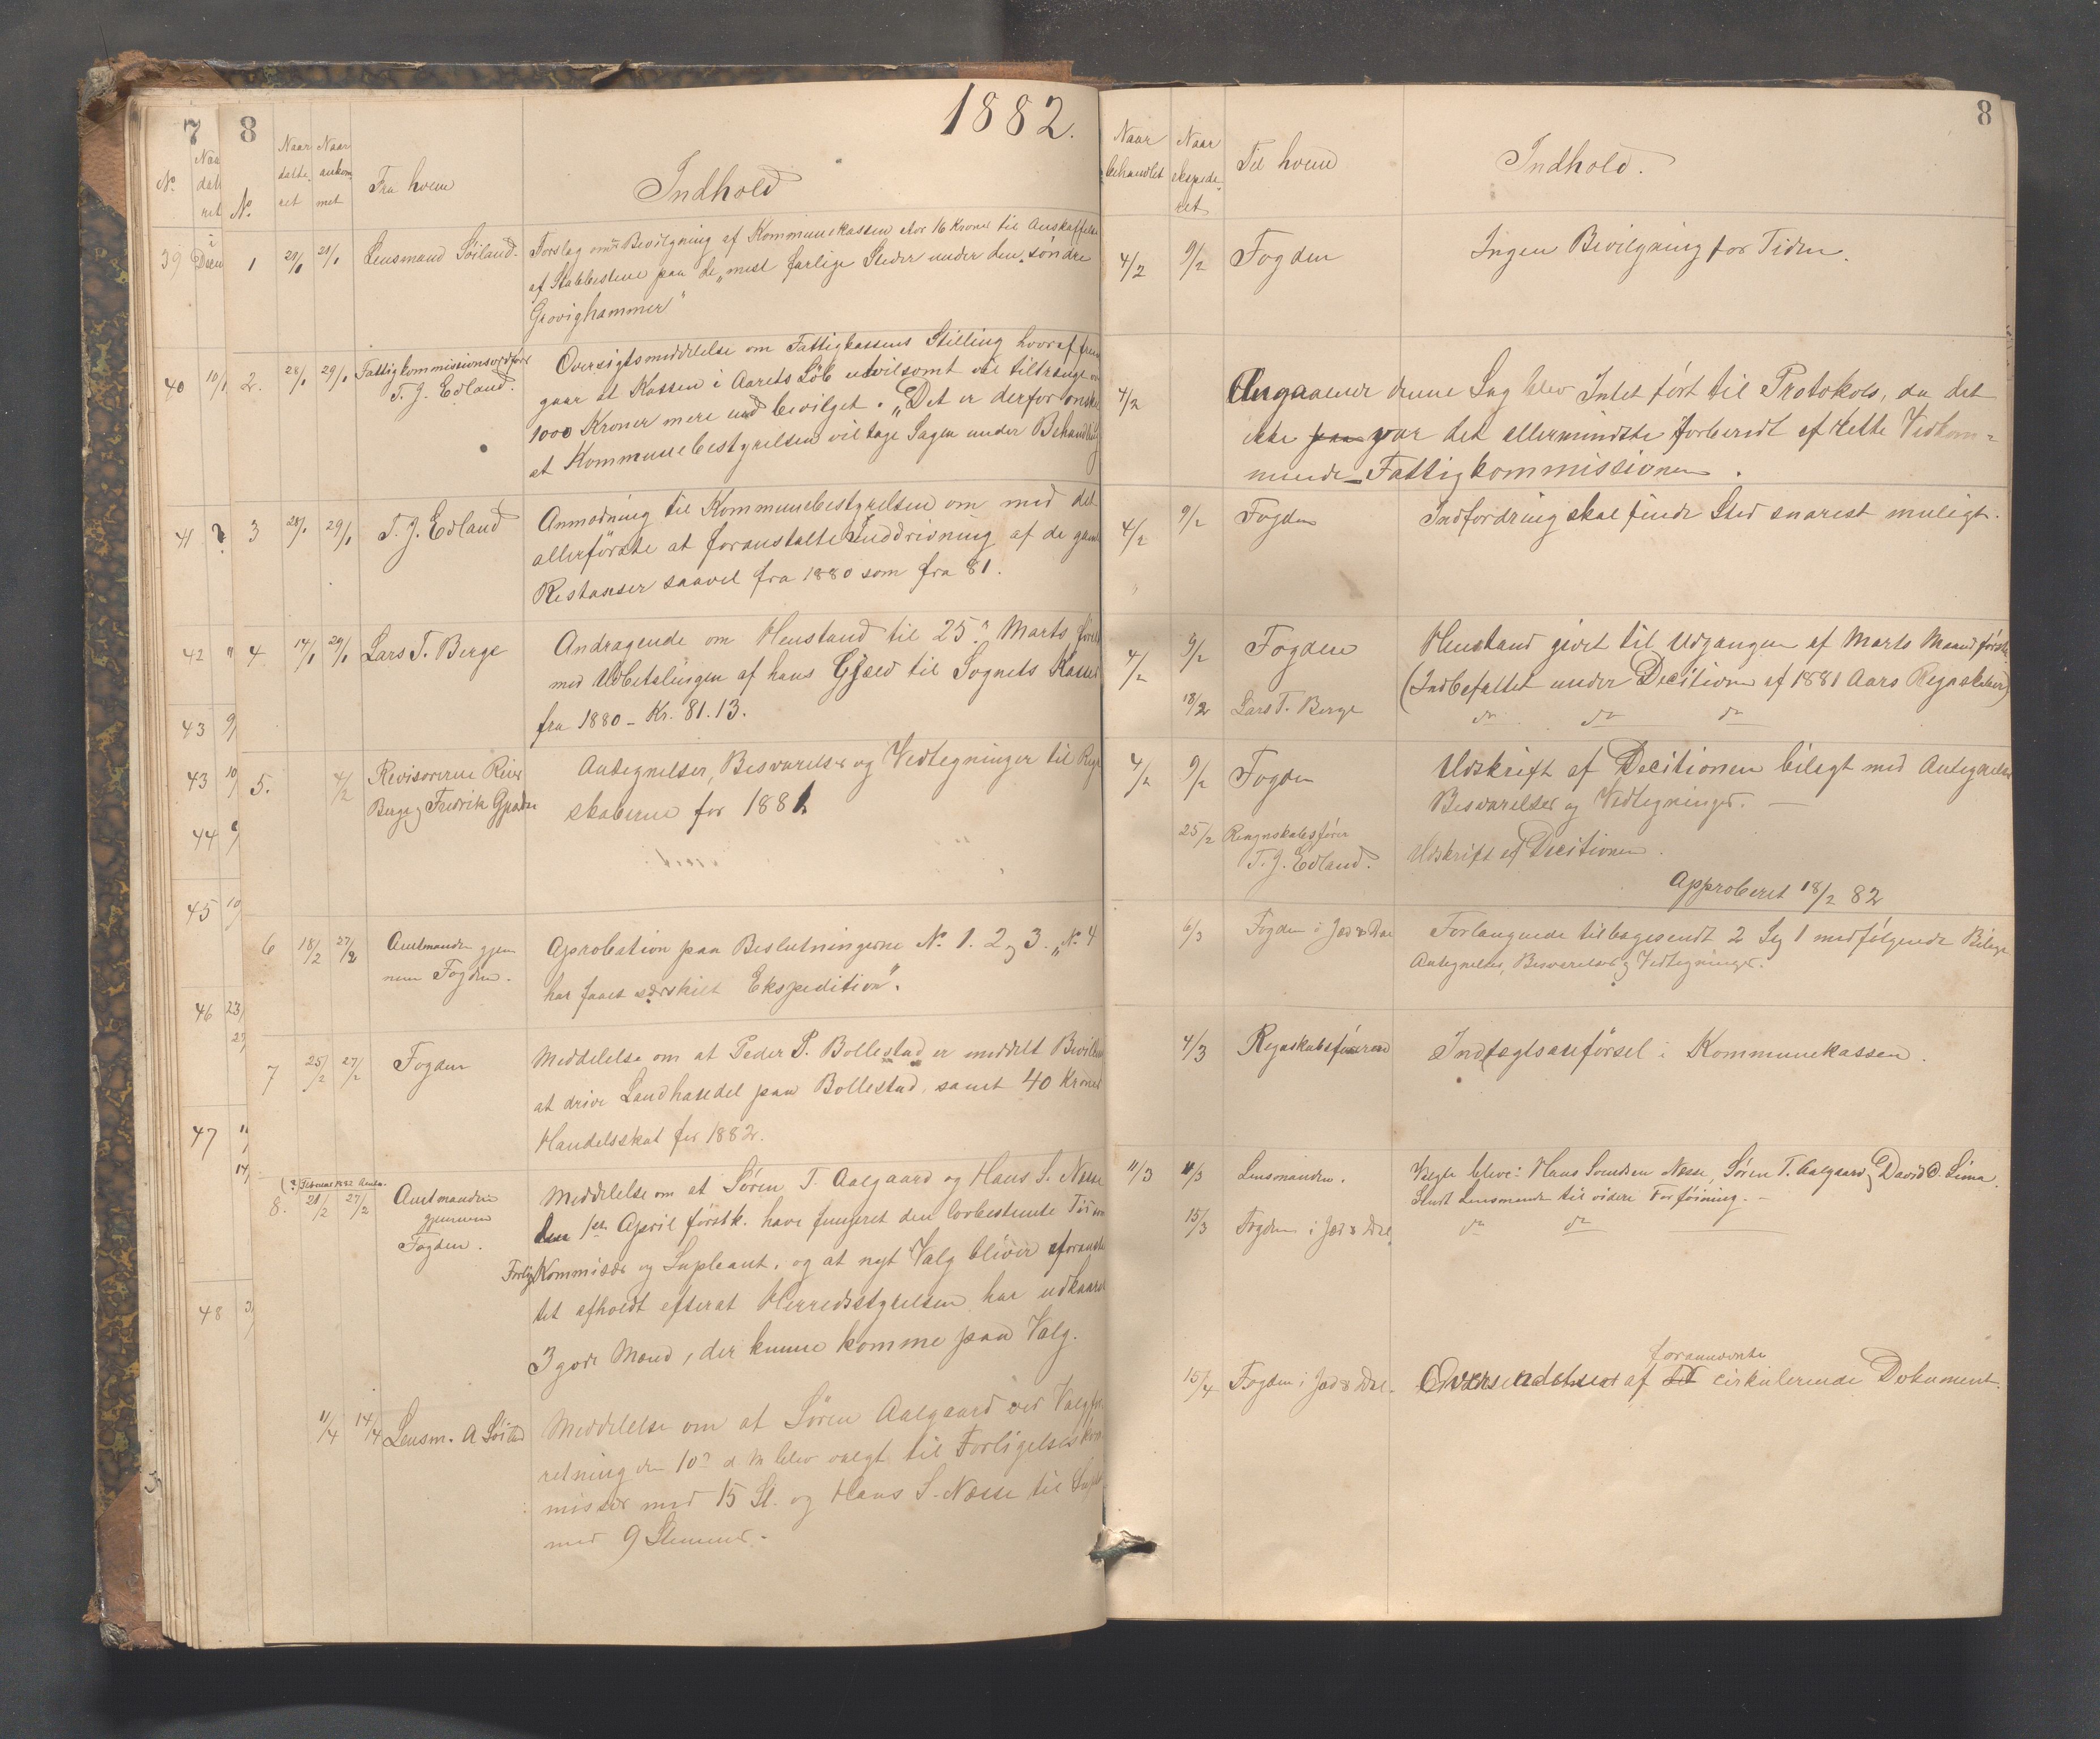 7
8
1882.
No.
Naa
dat
ret
No.
Naar
date-
ret
Naar
ankom
met
Fra hvem
Indhold
39
Decem
1
28/1
28/1
Lensmand Söiland.
Forslag om Bevilgning af Kommunekassen stor 16 Kroner til Anskaffelse
af Stabbestene paa de „mest farlige Steder under den söndre
Grovighammer"
40
10/1
2.
28/1
29/1
Fattigkommissionsordförer
T. J. Edland.
Oversigtsmeddelelse om Fattigkassens Stilling hvoraf frem
gaar at Kassen i Aarets Löb utvilsomt vil tiltrænge
1000 Kroner mere end bevilget. „Det er derfor önske
at Kommunebestyrelsen vil tage Sagen under Behandling
41
?
3
28/1
29/1
T. J. Edland
Anmodning til Kommunebestyrelsen om med det
allerförste at foranstalte Inddrivning af de gamle
Restanser saavel fra 1880 som fra 81.
42
"
4
14/1
29/1
Lars T. Berge
Andragende om Henstand til 25de Marts först
med Udbetalingen af hans Gjæld til Sognets Kasse
fra 1880 - Kr. 81.13.
43
9/
43
10/
5.
4/2
Revisorerne Reier
Berge og Fredrik Gjesdal
Antegnelser, Besvarelser og Vedtegninger til Regn
skaberne for 1881
44
45
10/
6
18/2
27/2
Amtmanden gjen
nem Fogden.
Aprobation paa Beslutningerne No. 1. 2 og 3. „No. 4
har faaet særskilt Ekspedition".
46
23/
23/
7
25/2
27/2
Fogden
Meddelelse om at Peder P. Bollestad er meddelt Bevilling
at drive Landhandel paa Bollestad, samt 40 Kroner
Handelsskat for 1882.
47
11/
14/
8.
21/2
27/2
Amtmanden
gjennem
Fogden.
Meddelelse om at Sören T. Aalgaard og Hans S. Nesse
den 1ste April förstk. have fungeret den lovbestemte Tid som
Forligs Kommisær og Supleant, og at nyt Valg bliver foranstal
tet afholdt efterat Herredsstyrelsen har udkaaret
3 gode Mænd, der kunne komme paa Valg.
48
3/
11/4
14/4
Lensm. A Söiland
Meddelelse om at Sören Aalgaard ved Valgfor
retning den 10de d M blev valgt til Forligelseskom
missær med 15 St. og Hans S. Nesse til Suple
med 9 Stemmer.
8
Naar
behandlet
Naar
ekspede-
ret
Til hvem
Indhold.
4/2
9/2
Fogden
Ingen Bevilgning for Tiden.
4/2
Angaaende denne Sag blev Intet fört til Protokols, da det
ikke paa var det allermindste forberedt af rette Vedkom=
mende - Fattigkommissionen.
4/2
9/2
Fogden
Indfordring skal finde Sted snarest muligt.
4/2
9/2
Fogden
Henstand givet til Udgangen af Marts Maaned förstk.
(Indbefattet under Decitionen af 1881 Aars Regnskaber)
18/2
Lars T. Berge
do do do
4/2
9/2
Fogden
Udskrift af Decitionen bilagt med Antegnelser
Besvarelser og Vedtegninger. —
25/2
Rengnskabsförer
T. J. Edland.
Udskrift af Decitionen.
Approberet 18/2 82
6/3
Fogden i Jæd & Dal
Forlangende tilbagesendt 2 Sæt 1 medfölgende Bilage
Antegnelser, Besvarelser og Vedtegninger.
4/3
Regnskabsföreren
Indtægtsanförsel i Kommunekassen.
11/3
11/3
Lensmanden.
Valgte bleve: Hans Svendsen Nesse, Sören T. Aalgaard og David O. Lima.
Sendt Lensmanden til videre Forföining. —
15/3
Fogden i Jæd & Dal.
do do —
15/4
Fogden i Jæd & Dal.
forannævnte
Oversendelse af cirkulerende Dokument.